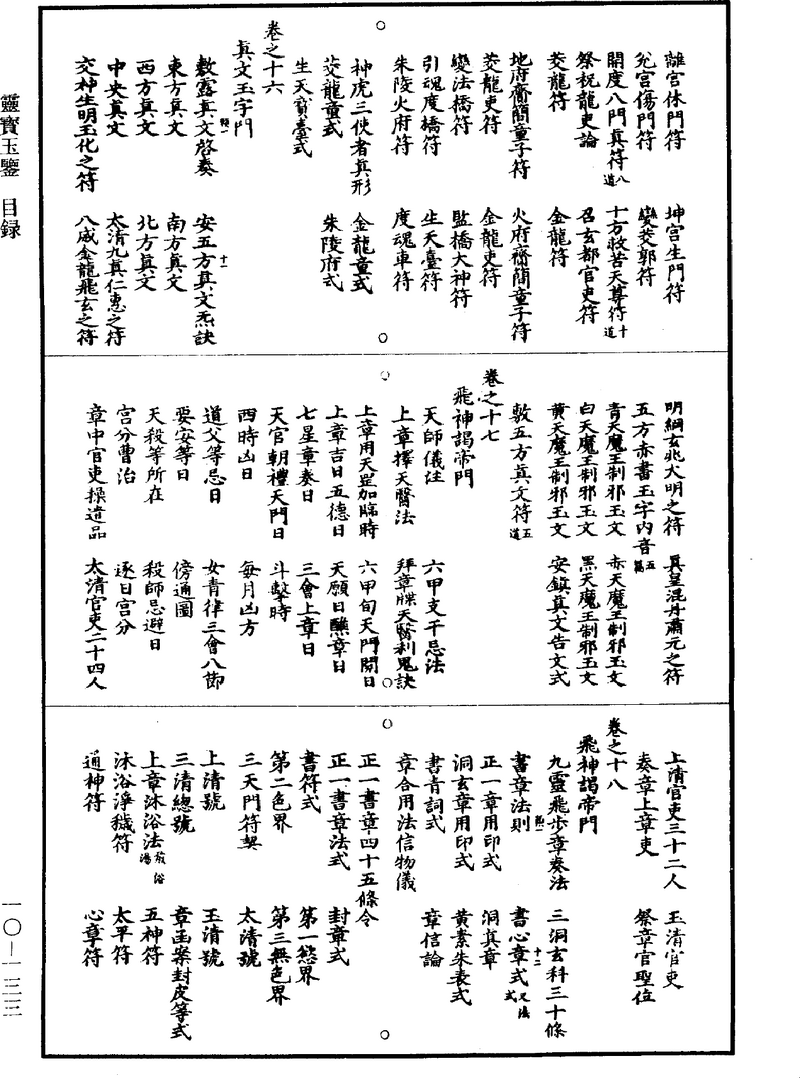 離宮休門符　坤宮生門符
兊宮傷門符　變茭郭符
開度八門真符八道　十方救苦天尊符十道
祭祝龍吏論　召玄都官吏符
茭龍符　金龍符
地府齋簡童子符　火府齋簡童子符
茭龍吏符　金龍吏符
變法橋符　監橋大神符
引魂度橋符　生天臺符
朱陵火府符　度魂車符
神虎三使者真形　金龍童式
茭龍童式　朱陵府式
生天寶臺式
卷之十六
真文玉字門
敷露真文啓奏　安五方真文炁訣
東方真文　南方真文
西方真文　北方真文
中央真文　太清九真仁惠之符
交神生明玉化之符　八威金龍飛玄之符
明綱玄兆大明之符　真皇混丹肅元之符
五方赤書玉字內音五篇
青天魔王制邪玉文　赤天魔王制邪玉文
白天魔王制邪玉文　黑天魔王制邪玉文
黃天魔王制邪玉文　安鎮真文告文式
敷五方真文符五道
卷之十七
飛神謁帝門
天師儀註　六甲支干忌法
上章擇天醫法　拜章牒天醫利鬼訣
上章用天罡加臨時　六甲旬天門開日
上章吉日五德日　天願日醮章日
七星章奏日　三會上章日
天官朝禮天門日　斗擊時
四時凶日　每月凶方
道父等忌日　女青律三會八節
要安等日　傍通圖
天殺等所在　殺師忌避日
宮分曹治　逐日宮分
章中官吏操遣品　太清官吏二十四人
上清官吏三十二人　玉清官吏
奏章上章吏　祭章官聖位
卷之十八
飛神謁帝門
九靈飛步章奏法　三洞玄科三十條
書章法則　書心章式又法式
正一章用印式　洞真章
洞玄章用印式　黃素朱表式
書青詞式　章信論
章合用法信物儀
正一書章四十五條令
正一書章法式　封章式
書符式　第一慾界
第二色界　第三無色界
三天門符契　太清號
上清號　玉清號
三清總號　章函案封皮等式
上章沐浴法　五神符
沐浴淨穢符　太平符
通神符　心章符
靈寶玉鑒　目録
一〇—一三三